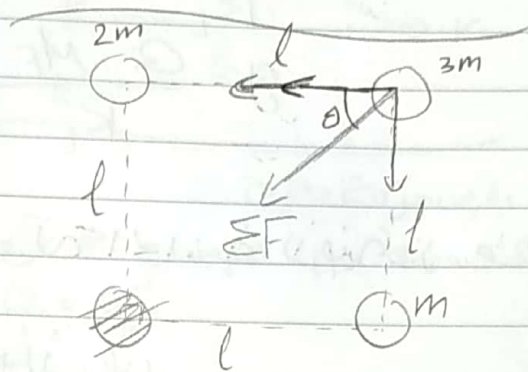 2m
l
3m
θ
l
ΣF
l
m
l